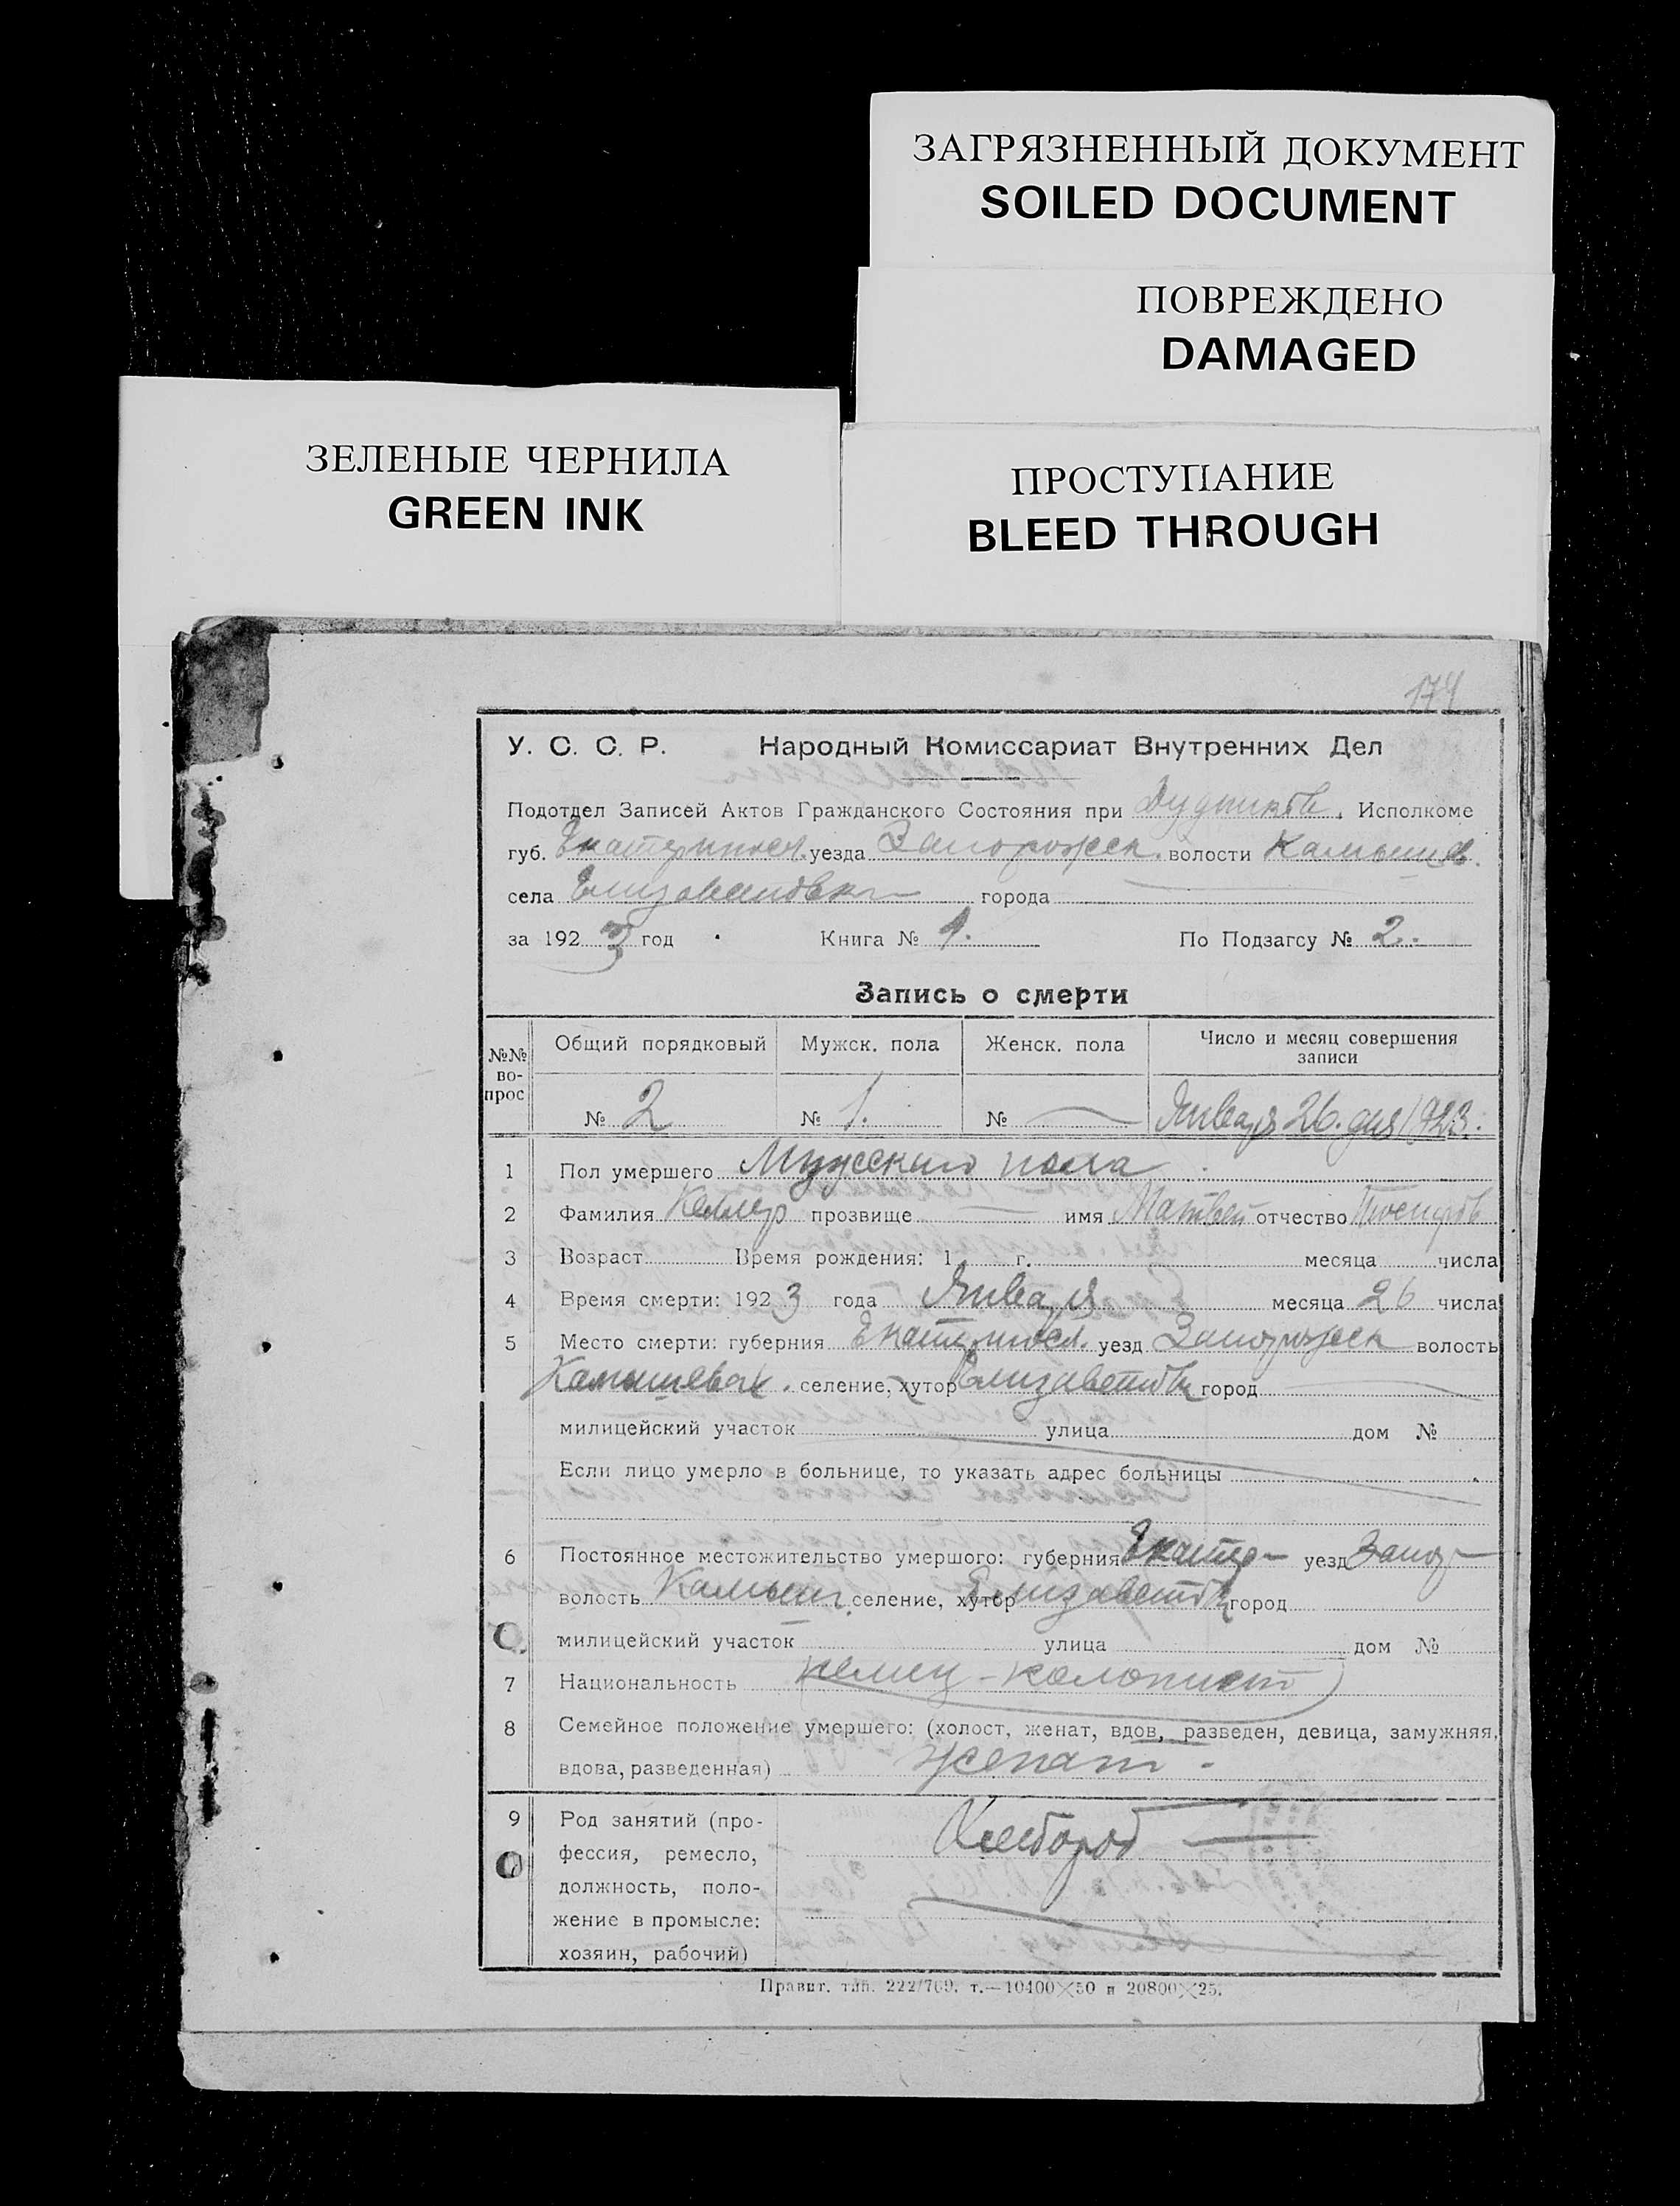 ЗАГРЯЗНЕННЫЙ ДОКУМЕНТ
SOILED DOCUMENT
ПОВРЕЖДЕНО
DAMAGED
ЗЕЛЕНЫЕ ЧЕРНИЛА
GREEN INK
ПРОСТУПАНИЕ
BLEED THROUGH
174
У. С. С. Р. Народный Комиссариат Внутренних Дел
Подотдел Записей Актов Гражданского Состояния при . Исполкоме
губ. Екатериносл. уезда Запорожск. волости Камышев.
села Елизаветовки города
за 1923 год Книга № 1. По Подзагсу № 2.
Запись о смерти
№№ во-прос Общий порядковый Мужск. пола Женск. пола Число и месяц совершения записи
№ 2 № 1. № Января 26. дня 1923.
1 Пол умершего Мужского пола
2 Фамилия Келлер прозвище имя Матвей отчество
3 Возраст Время рождения: 1 г. месяца числа
4 Время смерти: 1923 года Января месяца 26 числа
5 Место смерти: губерния Екатериносл. уезд Запорожск волость
Камышевах. селение, хутор Елизаветовк город
милицейский участок улица дом №
Если лицо умерло в больнице, то указать адрес больницы
6 Постоянное местожительство умершего: губерния Екатер уезд Запор
волость Камыш. селение, хутор Елизаветовк город
милицейский участок улица дом №
7 Национальность немец-колонист
8 Семейное положение умершего: (холост, женат, вдов, разведен, девица, замужняя,
вдова, разведенная) женат.
9 Род занятий (про- Хлебороб
фессия, ремесло,
должность, поло-
жение в промысле:
хозяин, рабочий)
Правит. тип. 222/769. т.—10400×50 и 20800×25.